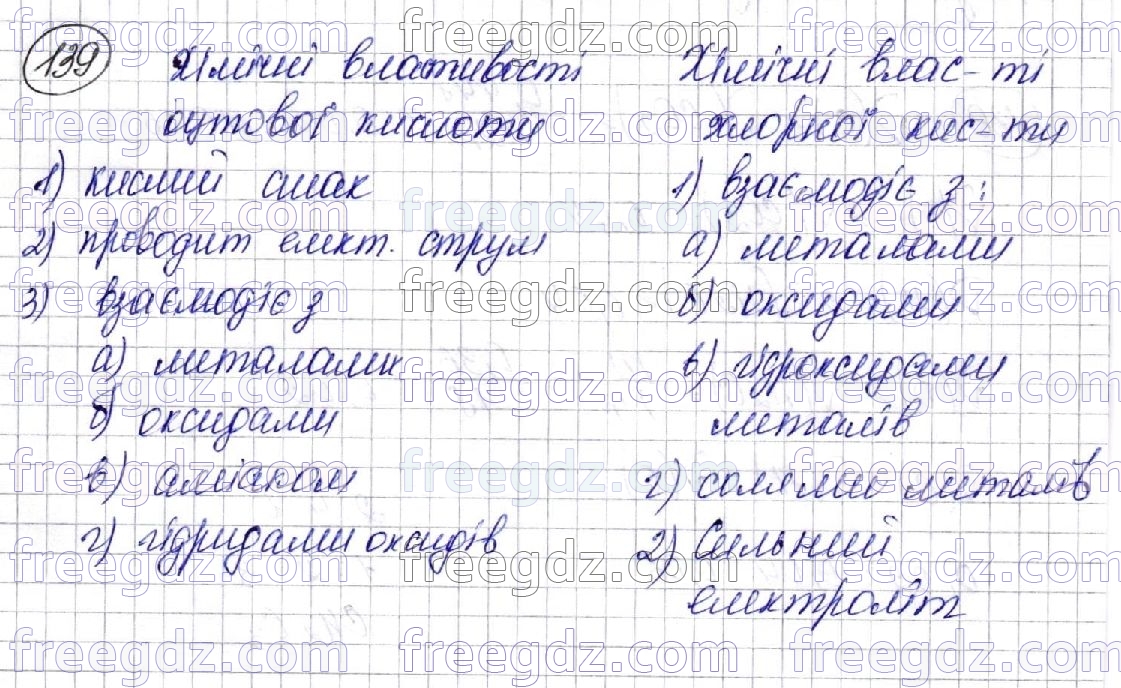 139
Хімічні властивості
оцтової кислоти
1) кислий смак
2) проводит елект. струм
3) взаємодіє з
а) металами
б) оксидами
в) аміаком
г) гідридами оксидів
Хімічні влас-ті
хлорної кис-ти
1) взаємодіє з:
а) металами
б) оксидами
в) гідроксидами
металів
г) солями металів
2) Сильний
електроліт
freegdz.com